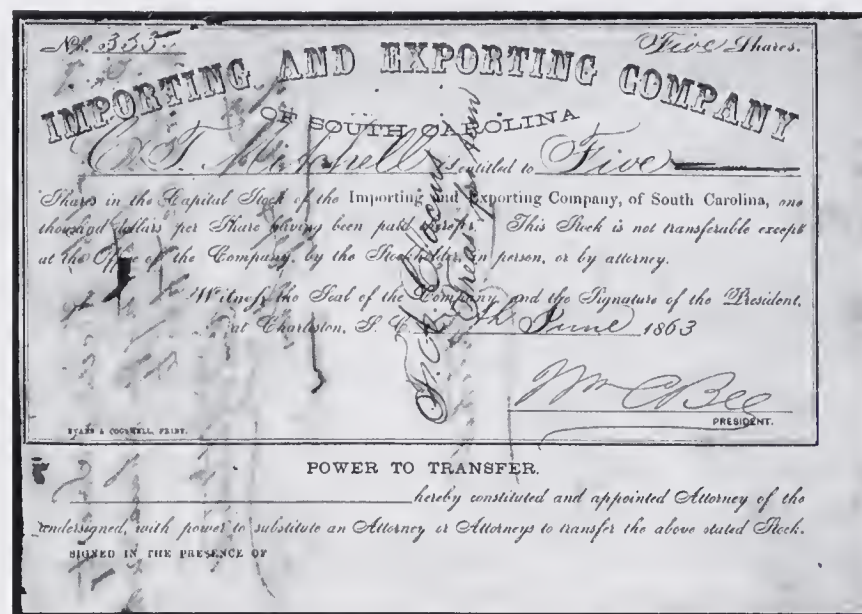 No. 335. Five Shares.
IMPORTING AND EXPORTING COMPANY
OF SOUTH CAROLINA
C. T. Mitchell is entitled to Five
Shares in the Capital Stock of the Importing and Exporting Company, of South Carolina, one
thousand dollars per Share having been paid thereon. This Stock is not transferable except
at the Office of the Company, by the Stockholder, in person, or by attorney.
Witness the Seal of the Company and the Signature of the President,
at Charleston, S. C. June 1863
Wm C Bee
PRESIDENT.
EVANS & COGSWELL, PRINT.
Treas.
POWER TO TRANSFER.
hereby constituted and appointed Attorney of the
undersigned, with power to substitute an Attorney or Attorneys to transfer the above stated Stock.
SIGNED IN THE PRESENCE OF